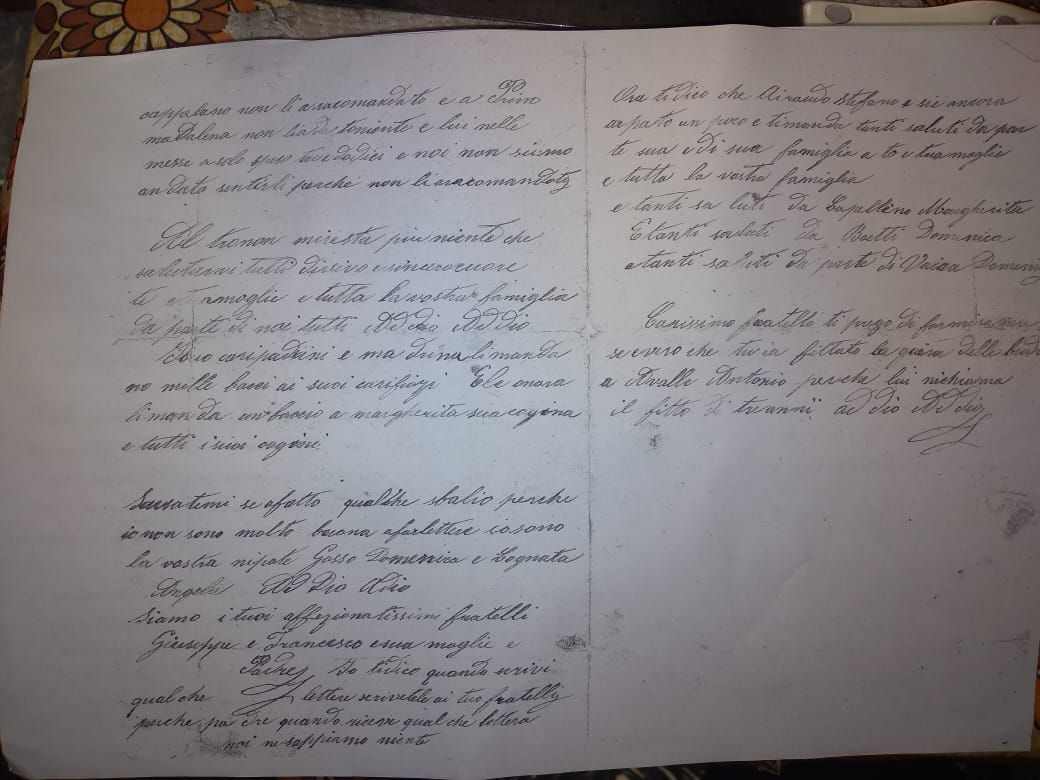 cappelano non li a racomandato e a Primo
ma Dalena non lia da toniente e lui nelle
messe a solo speso tore dodici e noi non siamo
andato sentirli perche non li a racomandoti
Al tro non mi resta piu niente che
salutarvi tutti di vivo e sincero cuore
te e tua moglie e tutta la vostra famiglia
da parte di noi tutti Ad dio Ad dio
suo cari padrini e ma drina li manda
no mille bacci ai suoi cari Ele onora
li man da un baccio a margherita sua cogina
e tutti i suoi cogini
temi se o fatto qualche sbalio perche
io non sono molto buona a far lettere io sono
la vostra nipote Gosso Domenica e Cognata
Angela Ad Dio
Siamo i tuoi affezionatissimi fratelli
Giuseppe e Francesco e sua moglie e
Padre Io ti dico quando scrivi
qual che lettere scrivetele ai tuo fratelli
perche pa dre quando riceve qual che lettera
noi ne sappiamo niente
Ora ti dico che Airaudo Stefano e sie ancora
un poco e ti manda tanti saluti da par
te sua e di sua famiglia a te e tua moglie
e tutta la vostra famiglia
e tanti sa luti da Capellino Margherita
E tanti saluti da Boetti Domenica
e tanti saluti da parte di Domenic
Carissimo fratello ti prego di farmi
se e vero che tu ia fittato la delle
a Avalle Antonio perche lui ni chiama
il fitto di tre anni ad dio Ad Dio